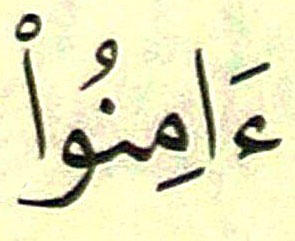 ءَامِنُواْ